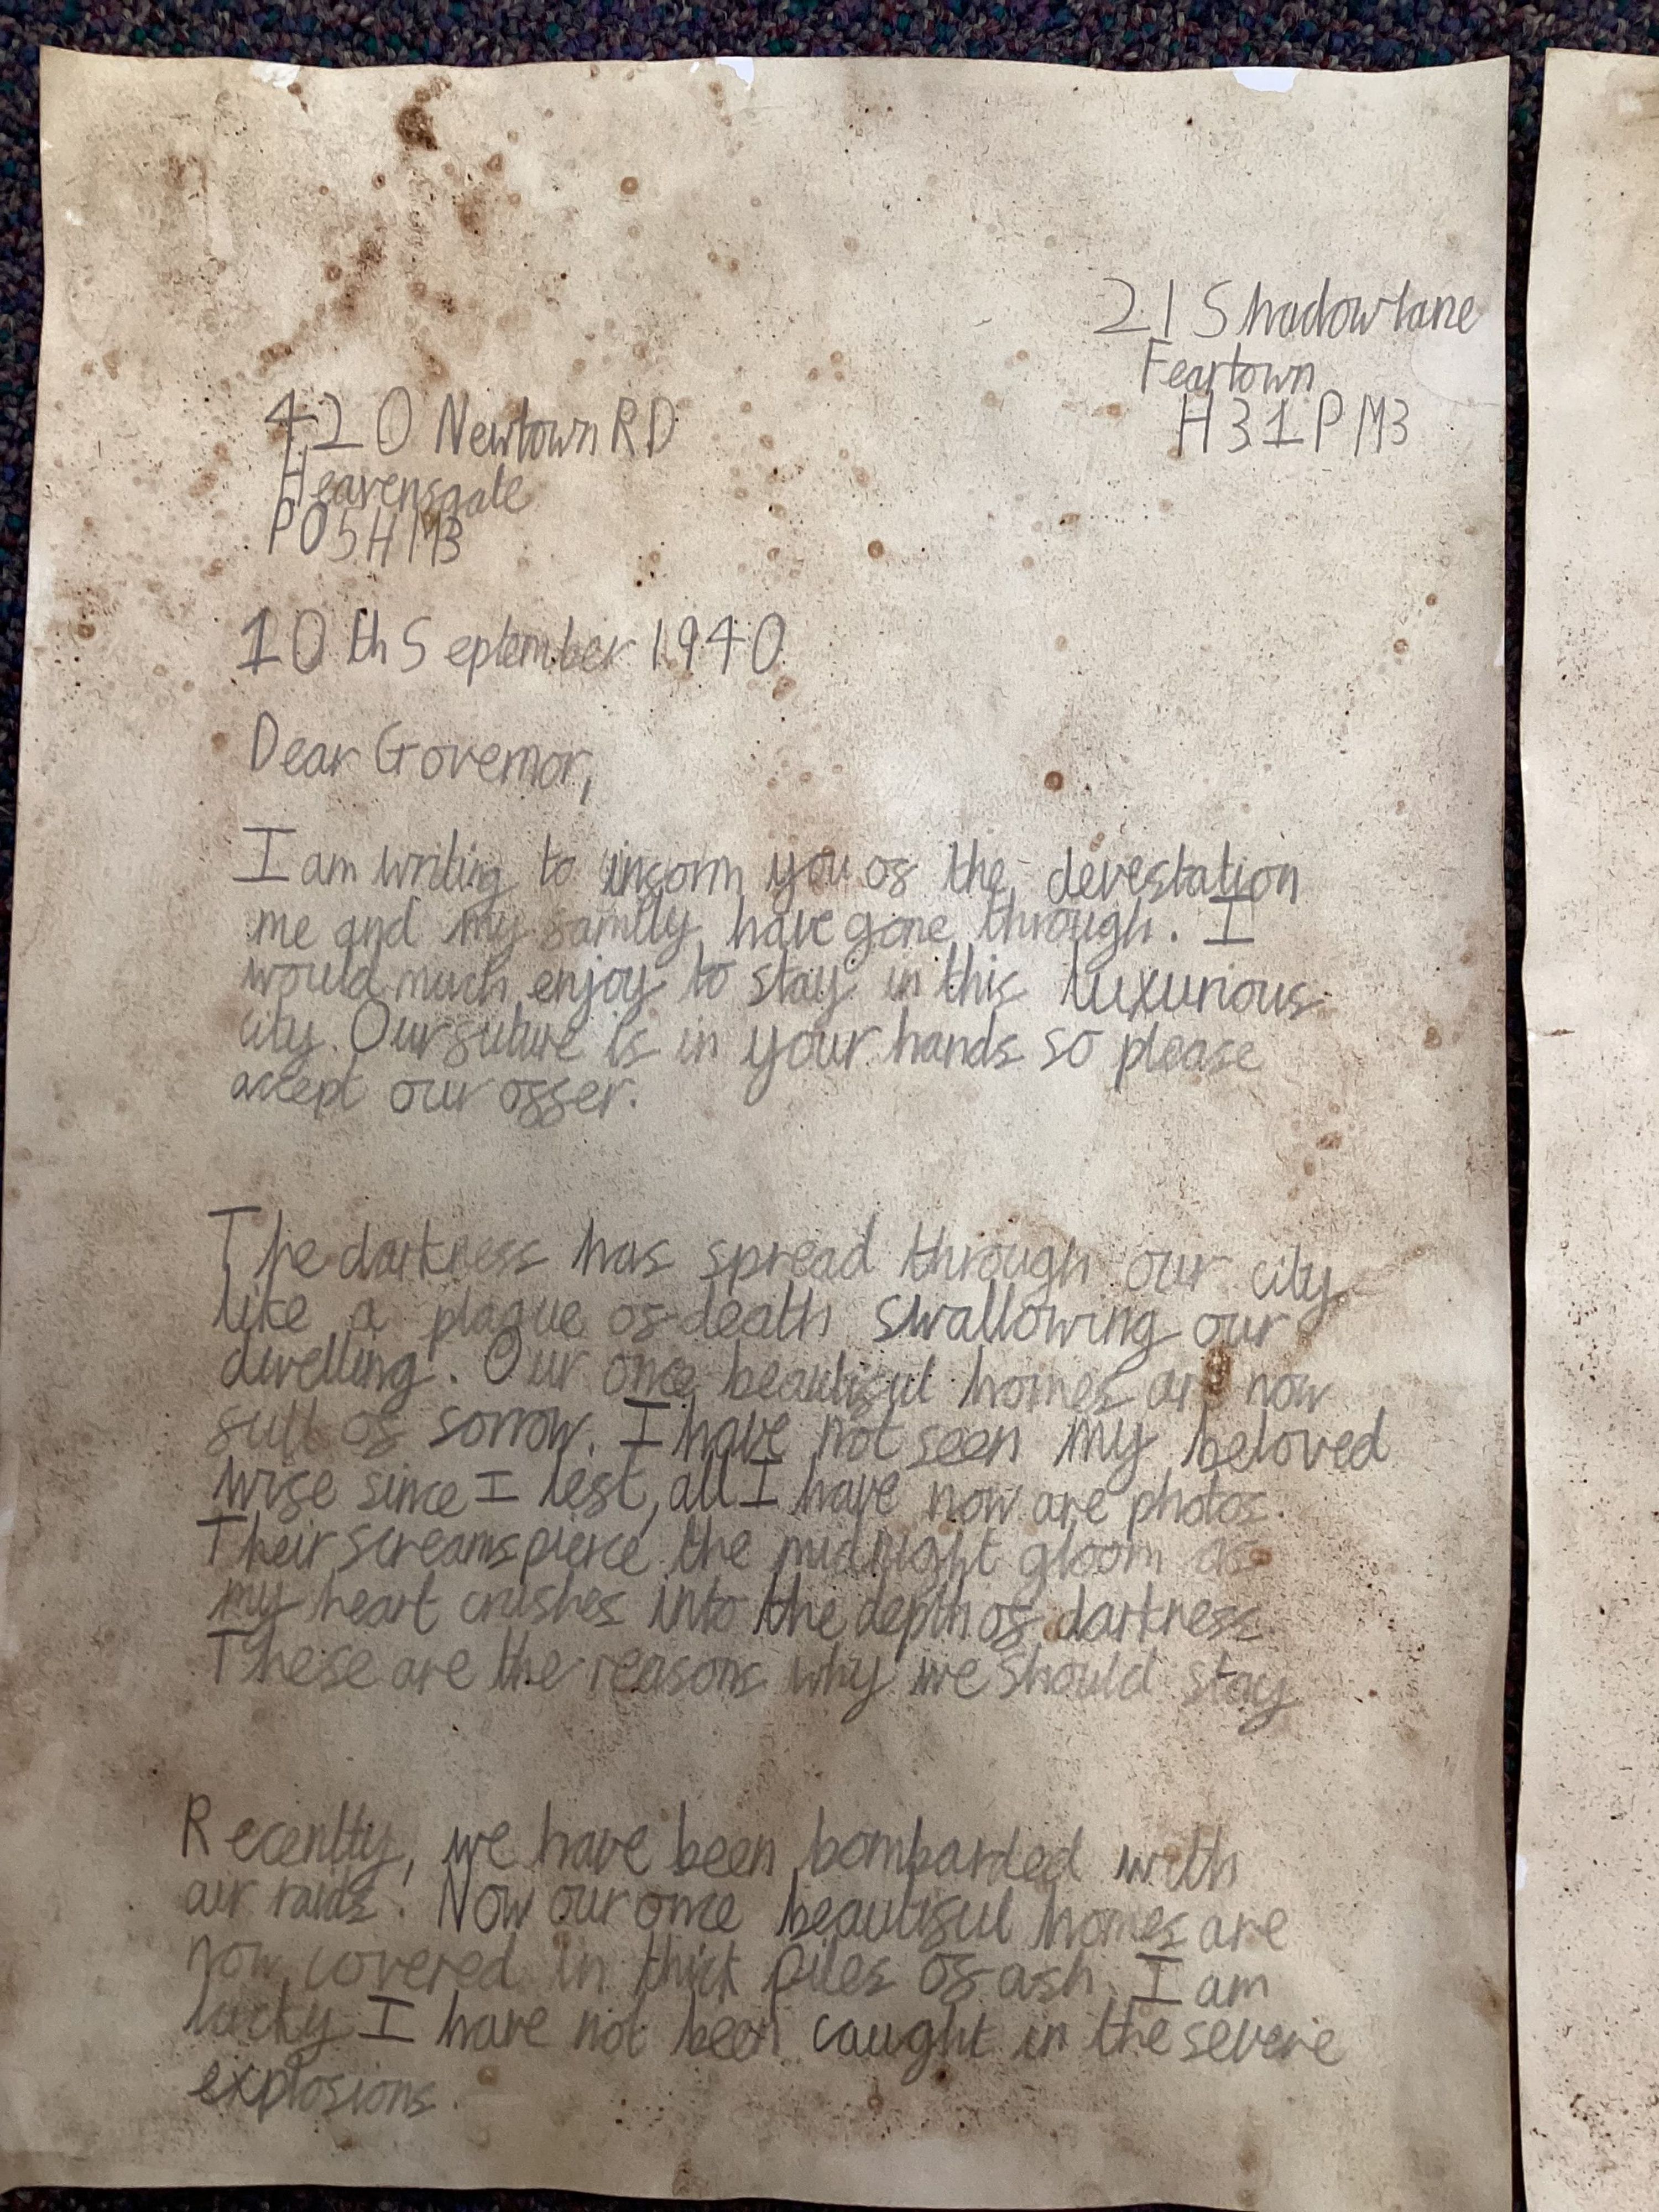 21 Shadow lane
Feartown
H31PM3
420 Newtown RD
Heavensgate
PO5HM3
10th September 1940
Dear Governor,
I am writing to inform you of the devestation
me and my family have gone through. I
would much enjoy to stay in this luxurious
city. Our future is in your hands so please
accept our offer.
The darkness has spread through our city
like a plague of death swallowing our
dwelling. Our once beautiful homes are now
full of sorrow. I have not seen my beloved
wife since I left, all I have now are photos.
Their screams pierce the midnight gloom as
my heart crushes into the depth of darkness.
These are the reasons why we should stay
Recently, we have been bombarded with
air raids. Now our once beautiful homes are
now covered in thick piles of ash. I am
lucky I have not been caught in the severe
explosions.